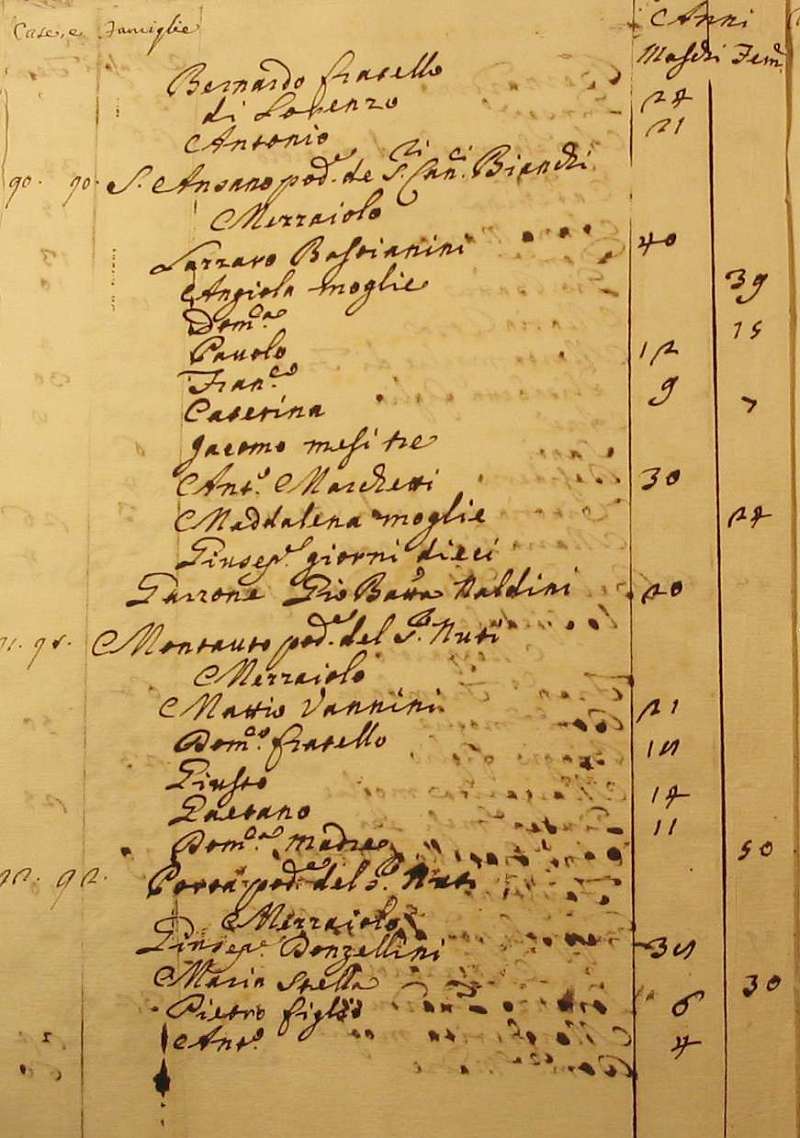 Case, e Famiglie Anni
Maschi Fem.
Bernardo fratello
di Lorenzo 24
Antonio 21
90. 90. S. Ansano pod.e de S.ri Can.ci Bianchi
Mezzaiolo
Lazzaro Bastianini 40
Angiola moglie 39
Dom.ca 15
Pavolo 12
Fran.co 9
Caterina 7
Jacomo mesi tre
Ant.o Marchetti 30
Maddalena moglie 24
Giusep.e giorni dieci
Garzone Gio Batta Naldini 20
91. 91. Montauto pod.e del S.r Nuti
Mezzaiolo
Mattio Vannini 21
Dom.co fratello 15
Giusto
Gaetano 14
11
Dom.ca madre 50
92. 92. pod.e del S.r Nuti
Mezzaiolo
Giusep.e Donzellini 35
Maria Stella 30
Pietro figlio 6
Ant.o 4